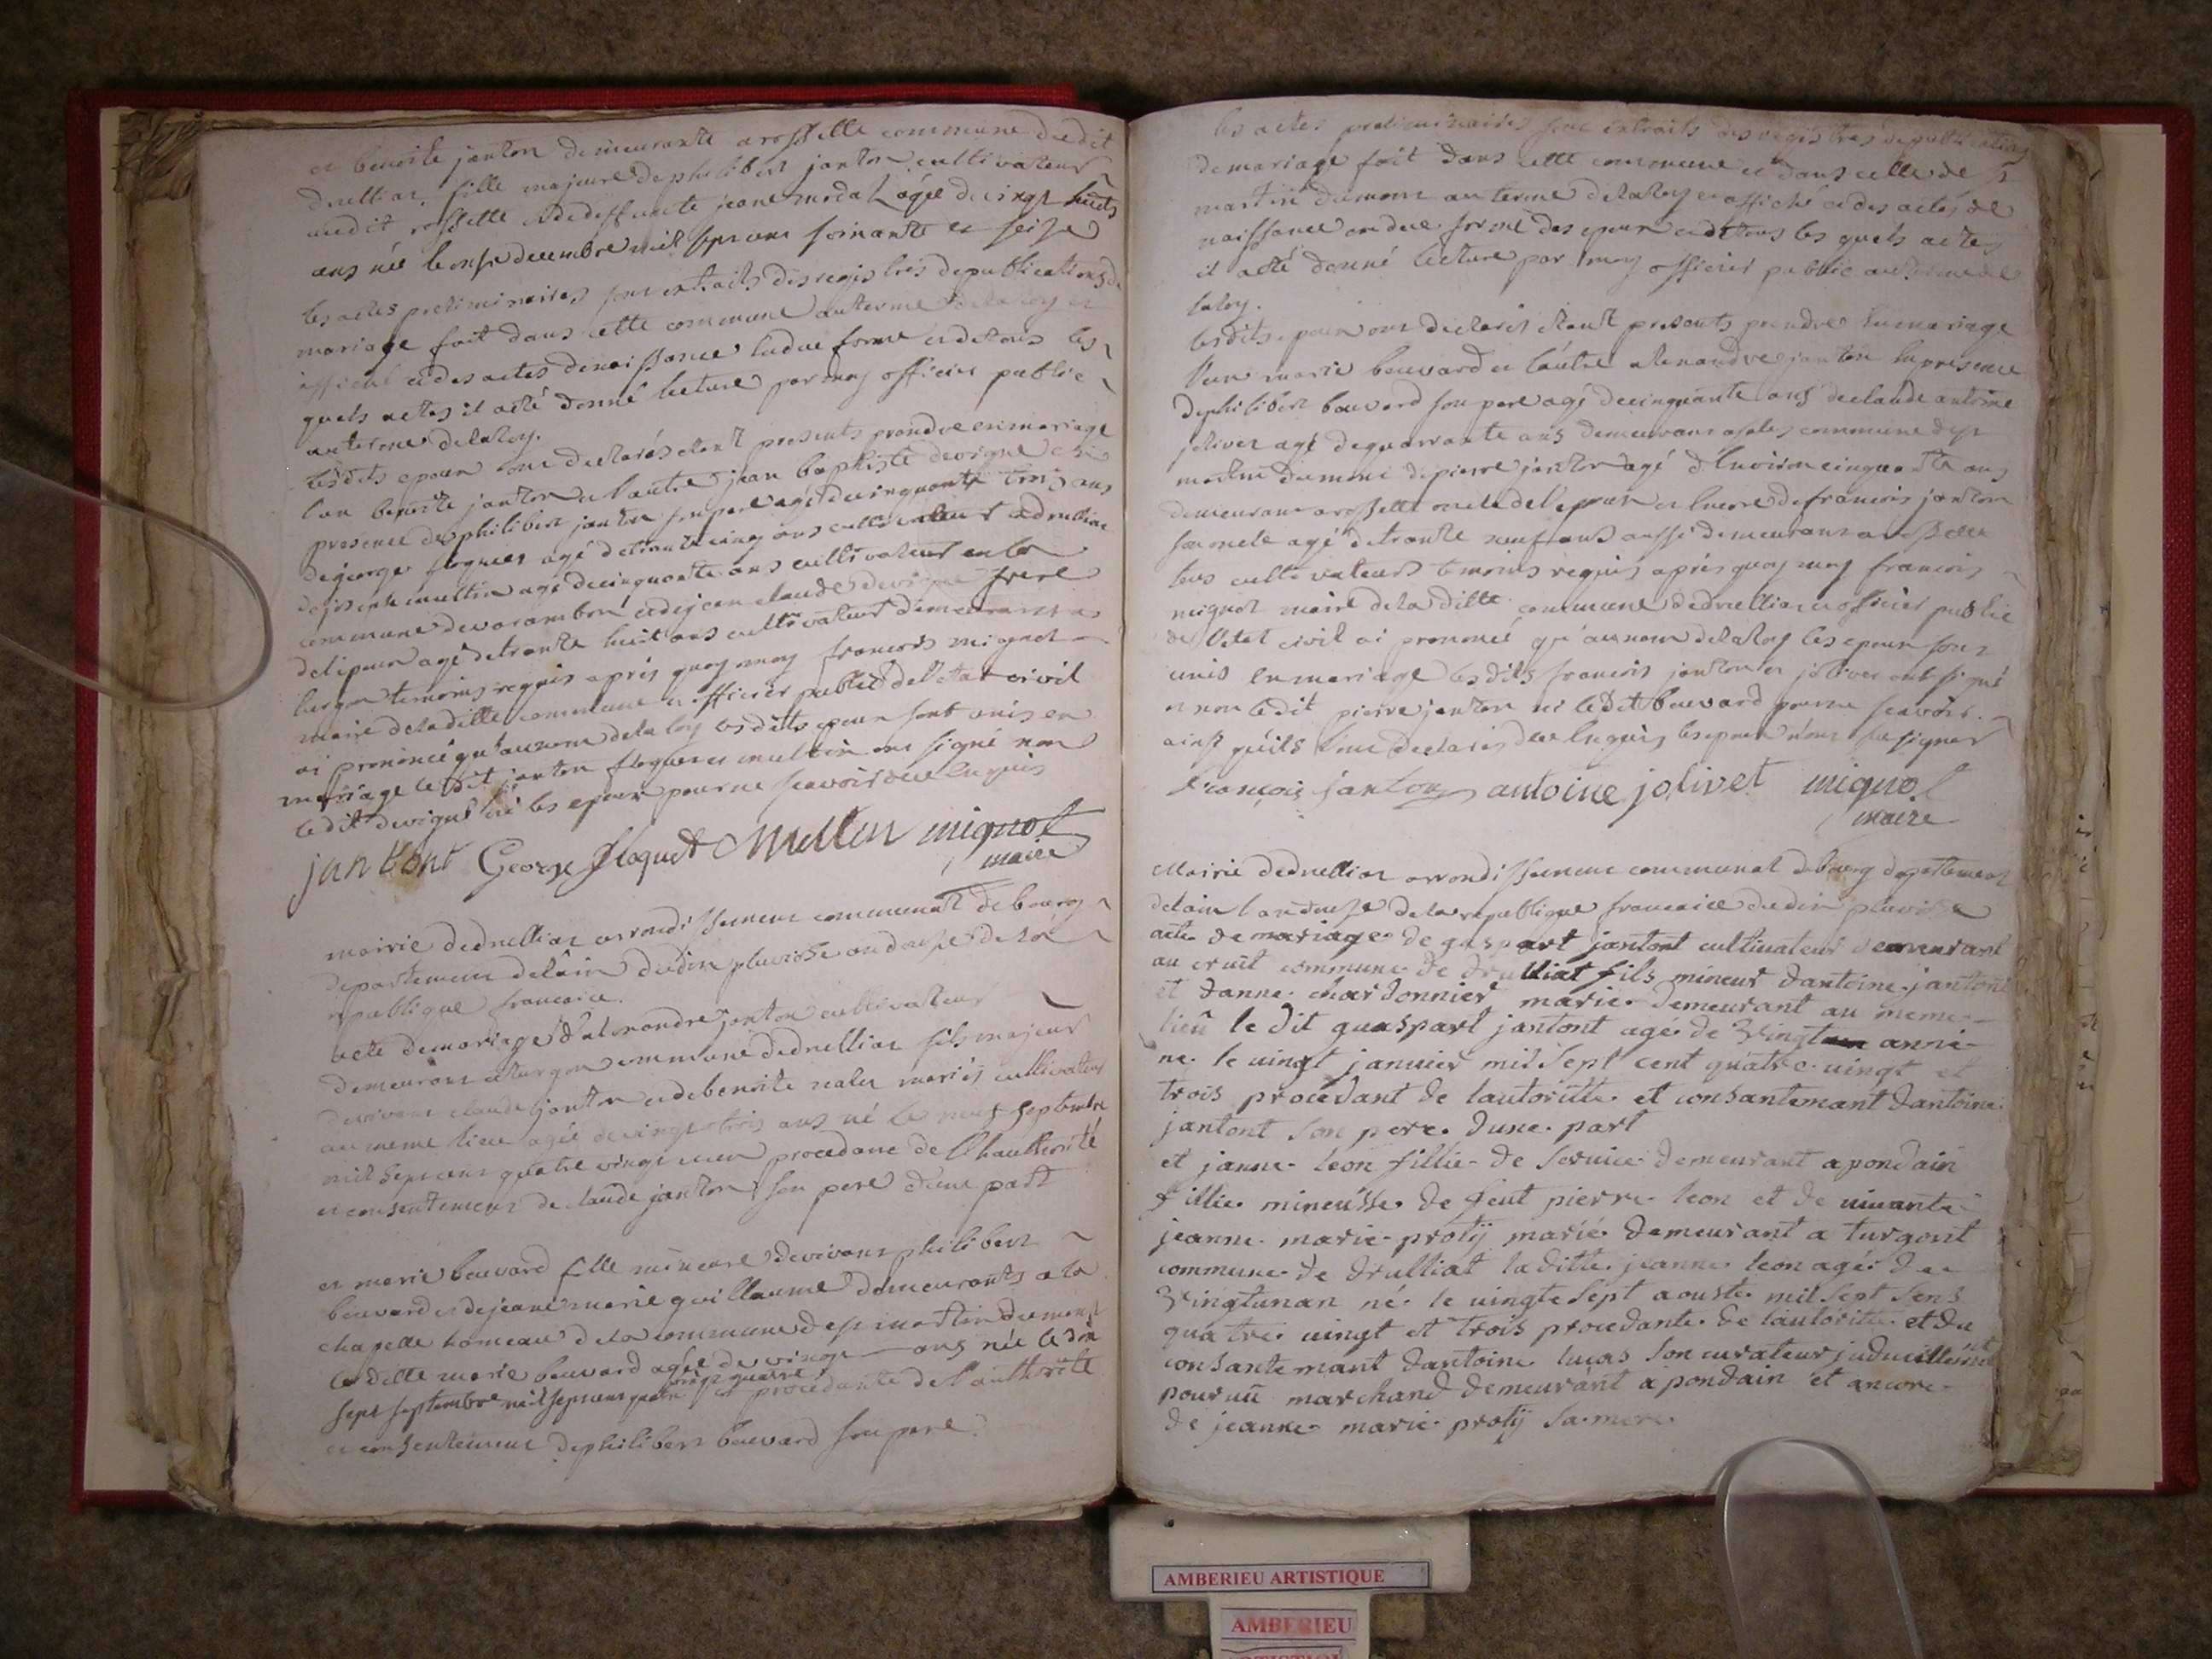 et benoite janton demeurante a rossette commune dudit
druilliat, fille majeure de philibert janton cultivateur
audit rossette et de deffunte jeane agée de vingt huits
ans née le onse decembre mil sept cent soixante et seise
les actes preliminaires sont extraits des registres de publications de
mariage fait dans cette commune au terme de la loy et
affiché et des actes de naissance en due forme et de tous les
quels actes il a été donné lecture par moy officier public
au terme de la loy.
lesdits epoux ont declarés etant presents prendre en mariage
l'un benoite janton et l'autre jean baptiste devigne en
presence de philibert janton son pere agé de cinquante trois ans
de george floquet agé de trante cinq ans cultivateur a druilliat
de joseph multin agé de cinquante ans cultivateur en la
commune de varambon et de jean claude devigne frere
de l'epoux agé de trante huit ans cultivateur demeurant a
turgon temoins requis apres quoy moy francois mignot
maire de la ditte commune et officier public de l'etat civil
ai prononcé qu'au nom de la loy lesdits epoux sont unis en
mariage ledit janton floquet et multin ont signé non
ledit devigne ni les epoux pour ne scavoir de ce enquis
jantont George floquet Multin mignot
maire
mairie de druilliat arrondissement communal de bourg
departement de l'ain du dix pluviose an douse de la
republique francaise.
acte de mariage d'alexandre janton cultivateur
demeurant a turgon commune de druilliat fils majeur
de vivant claude janton et de benoite mariés cultivateurs
au meme lieu agé de vingt trois ans né le neuf septembre
mil sept cent quatre vingt procedant de l'hauthorité
et consentement de claude janton son pere d'une part
et marie bouvard fille mineure de vivant philibert
bouvard et de jeane marie guillaume demeurants a la
chapelle hameau de la commune de st martin du mont
la ditte marie bouvard agée de vingt ans née le dix
sept septembre mil sept cent quatre vingt quatre et procedante de l'authorité
et consentement de philibert bouvard son pere.
les actes preliminaires sont extraits des registres de publications
de mariage fait dans cette commune et dans celle de st
martin du mont au terme de la loy et affiché et des actes de
naissance en due forme des epoux et de tous les quels actes
il a été donné lecture par moy officier public au terme de
la loy.
lesdits epoux ont declarés etant presents prendre en mariage
l'un marie bouvard et l'autre alexandre janton en presence
de philibert bouvard son pere agé de cinquante ans de claude antoine
jolivet agé de quarrante ans demeurans commune de st
martin du mont de pierre janton agé d'environ cinquante ans
demeurant a rossette oncle de l'epoux et encore de francois janton
son oncle agé de trante neuf ans aussi demeurant a rossette
tous cultivateurs temoins requis après quoy moy francois
mignot maire de la ditte commune de druillat et officier public
de l'etat civil ai prononcé qu'au nom de la loy les epoux sont
unis en mariage lesdits francois janton et jolivet ont signé
et non ledit pierre janton ni ledit bouvard pour ne scavoir.
ainsy qu'ils l'ont declarés de ce enquis les epoux n'ont su signer
françois janton antoine jolivet mignot
maire
Mairie de druillat arrondissement communal de bourg departement
de l'ain l'an douse de la republique francaise du dix pluviose
acte de mariage de gaspart jantont cultivateur demeurant
au cruit commune de drulliat fils mineur dantoine jantont
et danne chardonnier marie demeurant au meme
lieû le dit guaspart jantont age de vingt anné
ne le uingt januier mil sept cent quatre uingt et
trois procédant de lautoritte et consantemant dantoine
jantont son pere dune part
et janne leon fillie de seruice demeurant a pondain
fillie mineusse de feut pierre leon et de uiuante
jeanne marie protÿ marié demeurant a turgont
commune de drulliat laditte jeanne leon agé de
vingtunan né le uingte sept aouste mil sept sens
quatre uingt et trois procedante de lautoritte et du
consantemant dantoine lucas son curateur juducillemnt
pouruû marchand demeurant a pondain et ancore
de jeanne marie protÿ sa mere
AMBERIEU ARTISTIQUE
AMBERIEU